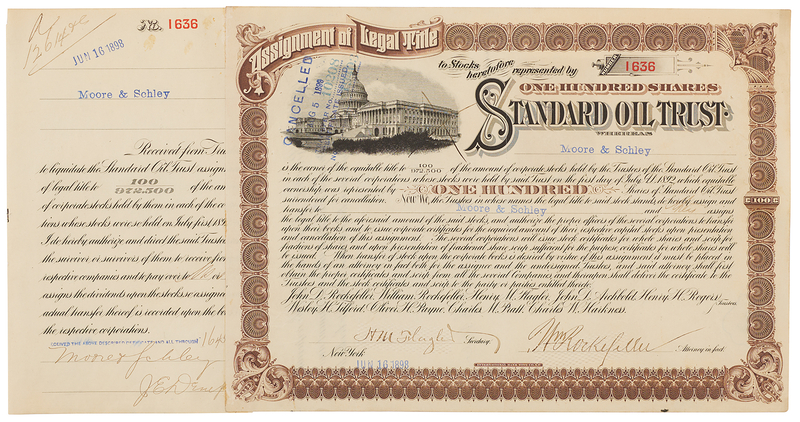 No. 1636
JUN 16 1898
Moore & Schley
Received from
to liquidate the Standard Oil Trust assig
of legal title to 100/972.500 of the am
of corporate stocks held by them in each of the co
tions whose stocks were so held on July first, 189
I do hereby authorize and direct the said Trustee
the survivor or survivors of them to receive fro
respective companies and to pay over to
assigns the dividends upon the stocks so assigne
actual transfer thereof is recorded upon the bo
the respective corporations.
Moore & Schley
Assignment of Legal Title
to Stocks heretofore represented by No. 1636
ONE HUNDRED SHARES
STANDARD OIL TRUST.
WHEREAS
Moore & Schley
CANCELLED
is the owner of the equitable title to 100/972.500 of the amount of corporate stocks held by the Trustees of the Standard Oil Trust
in each of the several corporations whose stocks were held by said Trust on the first day of July A.D. 1892, which equitable
ownership was represented by ONE HUNDRED Shares of Standard Oil Trust
surrendered for cancellation. Now We, the Trustees in whose names the legal title is vested do hereby assign and
transfer to Moore & Schley and assigns
the legal title to the aforesaid amount of the said stocks, and authorize the proper officers of the several corporations to transfer
upon their books and to issue corporate certificates for the equitable amount of their respective capital stocks upon presentation
and cancellation of this assignment. The several corporations will issue stock certificates for whole shares and scrip for
fractions of shares and upon presentation of fractional share scrip sufficient for the purpose, certificates for whole shares will
be issued. When transfer of stock upon the corporate books is desired by virtue of this assignment it must be placed in
the hands of an attorney in fact both for the assignee and the undersigned Trustees, and said attorney shall first
obtain the proper certificates and scrip from all the several Companies and thereupon shall deliver the certificate to the
Trustees and the stock certificates and scrip to the party or parties entitled thereto.
John D. Rockefeller, William Rockefeller, Henry M. Flagler, John D. Archbold, Henry H. Rogers,
Wesley H. Tilford, Oliver H. Payne, Charles M. Pratt, Charles W. Harkness. Trustees.
H M Flagler Secretary.
Wm Rockefeller Attorney in fact.
New York
JUN 16 1898
100